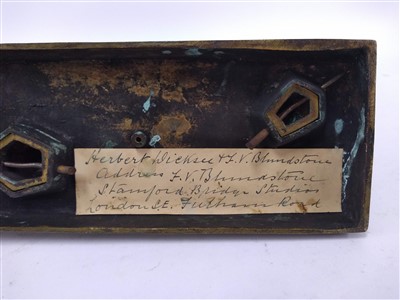 Herbert Dicksee & F. V. Blundstone
Address F. V. Blundstone
Stamford Bridge Studios
London S.E. Fulham Road